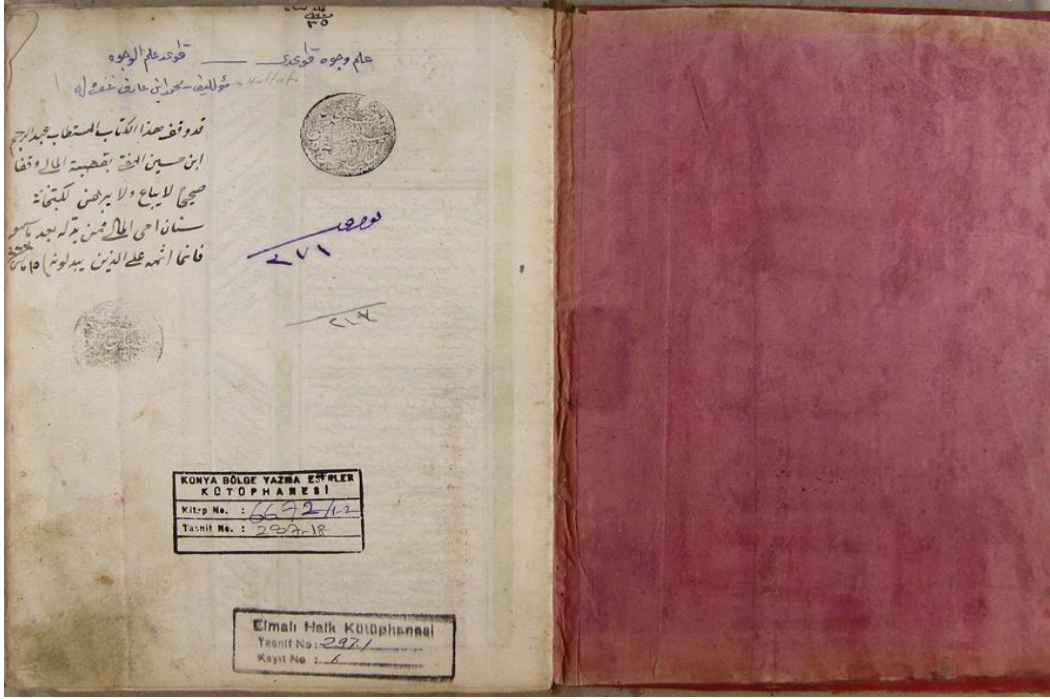 ٣٥
علم وجوه قواعدى — قواعد علم الوجوه
مؤلفى محمد ابن عارف غفر له
قد وقف هذا الكتاب المستطاب عبدالرحيم
ابن حسين المفتى بقصبة المالى وقفا
صحيحا لا يباع ولا يرهن لكتبخانۀ
سنان امى المالى فمن بدله بعد ما سمعه
فانما اثمه على الذين يبدلونه
نومرو
٢٧١
KONYA BÖLGE YAZMA ESERLER
KÜTÜPHANESİ
Kitap No. : 6672/1-2
Tasnif No. : 297.18
Elmalı Halk Kütüphanesi
Tasnif No : 297.1
Kayıt No : 6